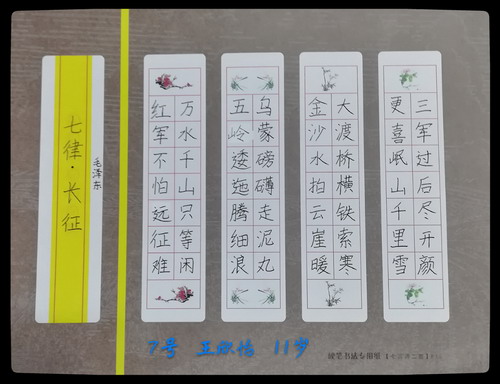 七律·长征
毛泽东
红军不怕远征难
万水千山只等闲
五岭逶迤腾细浪
乌蒙磅礴走泥丸
金沙水拍云崖暖
大渡桥横铁索寒
更喜岷山千里雪
三军过后尽开颜
7号 王欣怡 11岁
硬笔书法专用纸